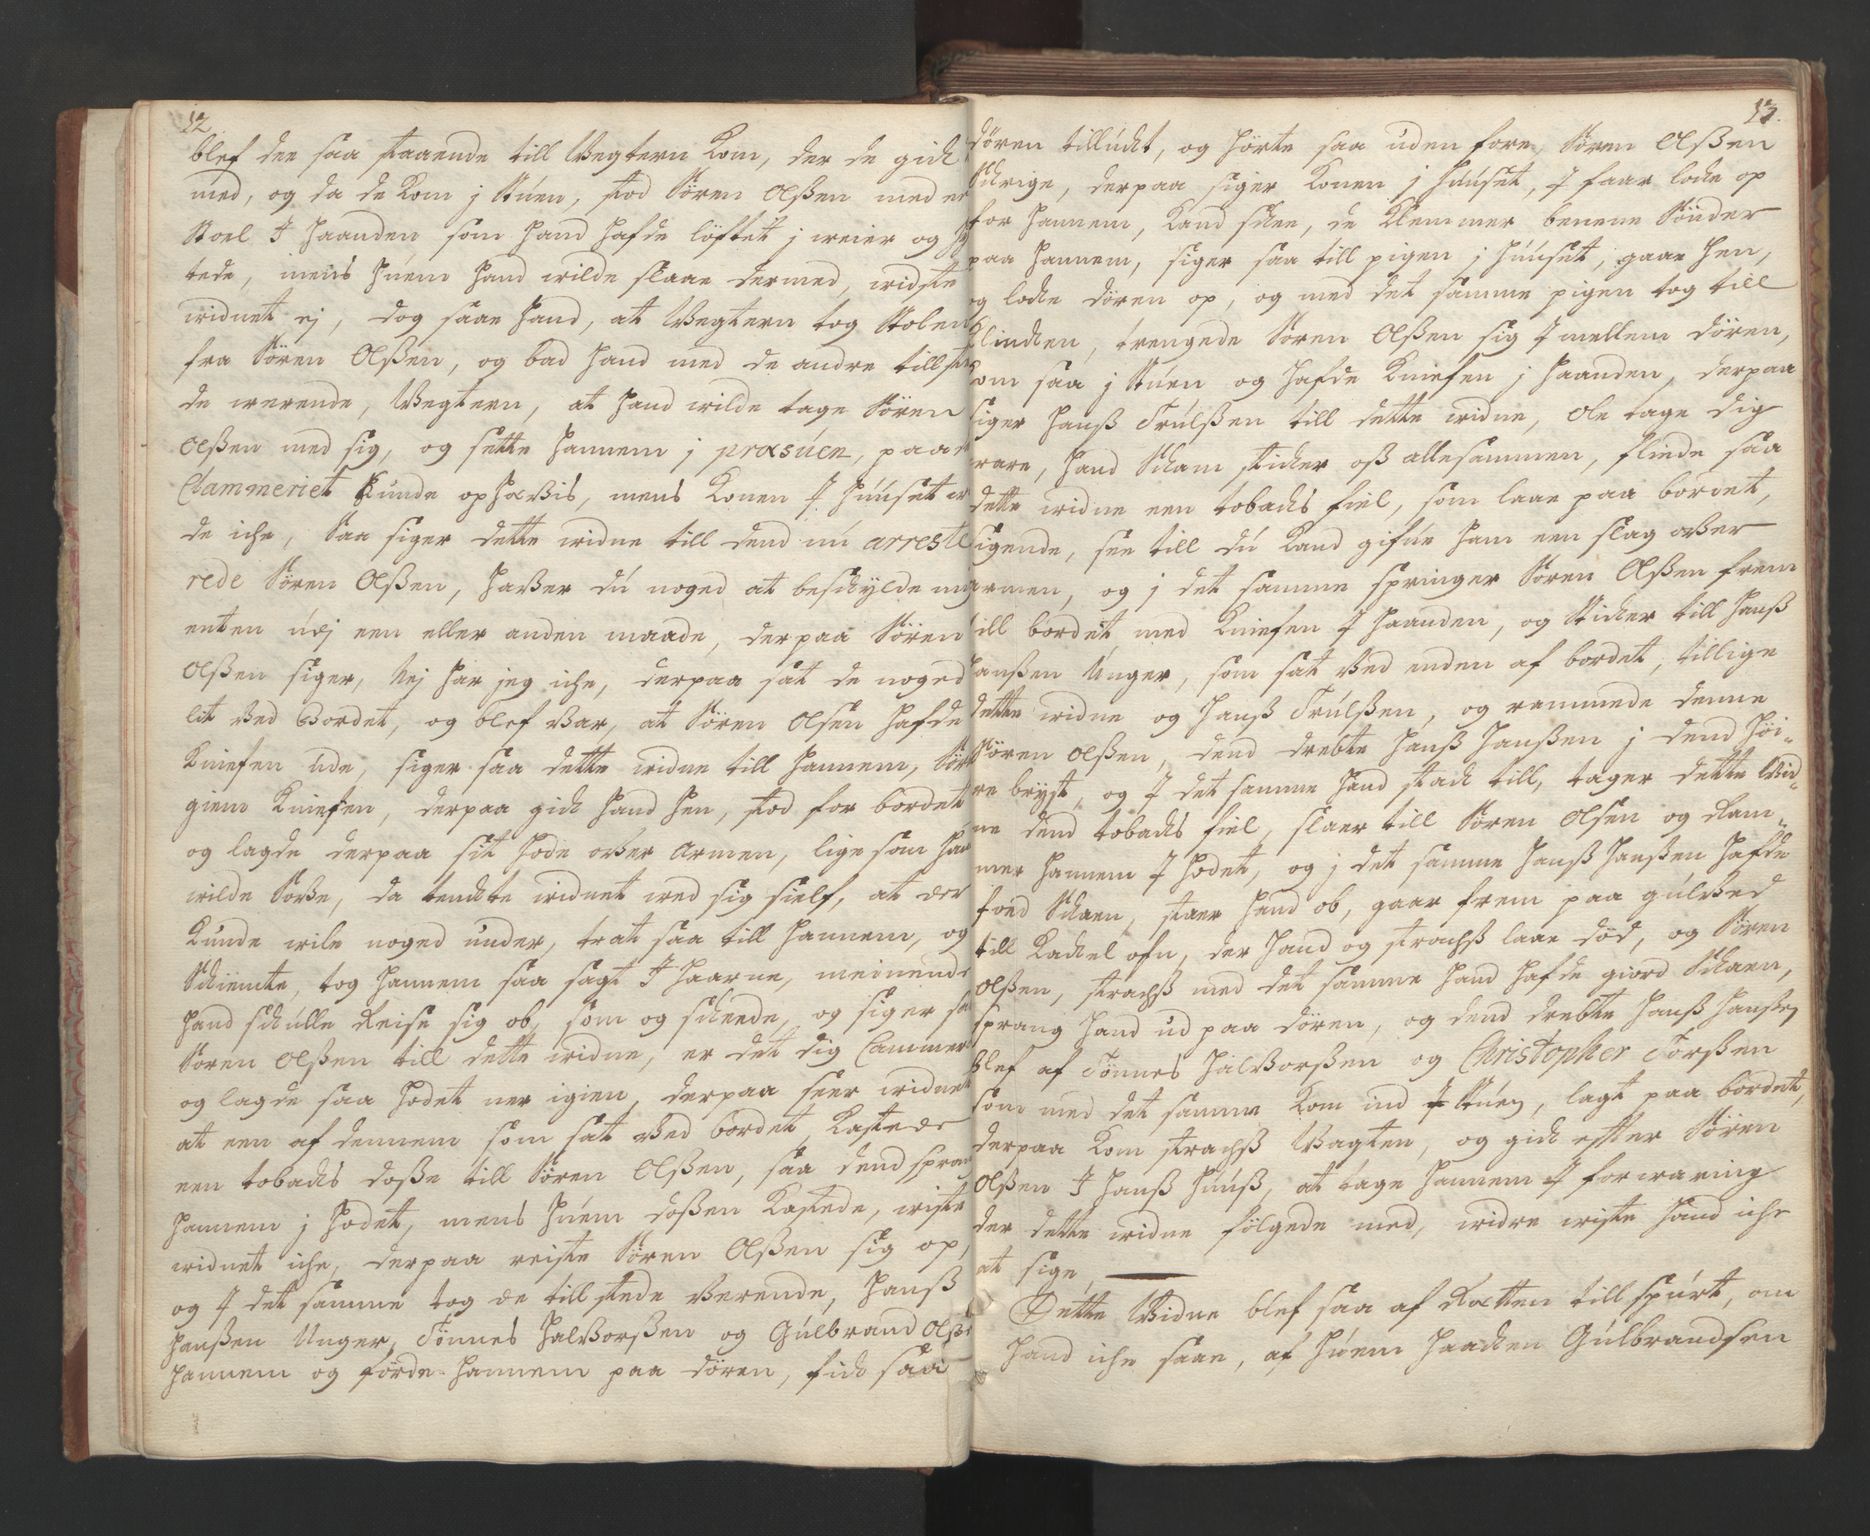 12.
blef dee saa staaende till Vegtern kom, der de gich
med, og da de kom j Stúen, stod Sören Olßen med en
Stoel I haanden som hand hafde löftet j weier og
tede, mens húem hand wilde slaae dermed, widste
widnet ej, dog saae hand, at Vegtern tog Stolen
fra Sören Olßen, og bad hand med de andre till ste
de werende, Vegtern, at hand wilde tage Sören
Olßen med sig, og sette hannem j præsúen, paa
Clammeriet kunde ophæßis, mens konen J húúset
de iche, Saa siger dette widne till dend nú arreste
rede Sören Olßen, haßer dú noged at beschylde mig
enten udj een eller anden maade, derpaa Sören
Olßen siger, Nej har jeg iche, derpaa sat de noged
lit ved Bordet, og blef var, at Sören Olsen hafde
kniefen ude, siger saa dette widne till hannem, Sör
giem kniefen, derpaa gich hand hen, stod for bordet
og lagde derpaa sit hode ower Armen, lige som han
wilde Sowe, da tenchte widnet wed sig sielf, at der
kunde wile noged under, trat saa till hannem, og
Schiemte, tog hannem saa sagt I haarne, meinende
hand schulle Reise sig ob, som og scheede, og siger saa
Sören Olßen till dette widne, er det dig Cammer
og lagde saa hodet ner igien, derpaa seer widnet
at een af dennem som sat ved bordet, kastede
een tobachs doße till Sören Olßen, saa dend sprang
hannem j hodet, mens húem doßen kastede, wiste
widnet iche, derpaa reiste Sören Olßen sig op,
og J det samme tog de till stede verende, Hanß
Hanßen Unger, Tönnes Halvorßen og Gúlbrand Olße
hannem og förde hannem paa dören, fich saa
13.
dören tilluckt, og hörte saa uden fore, Sören Olßen
Schrige, derpaa siger konen j húúset, J faar lade op
for hannem, kand schee, de klemmer benene Sönder
paa hannem, siger saa till pigen j húúset, gaae hen,
og lade dören op, og med det samme pigen tog till
klinchen, trengede Sören Olßen sig J mellem dören,
kom saa j Stúen og hafde kniefen j haanden, derpaa
siger Hanß Trúlßen till dette widne, Ole tage dig
vare, hand Scham sticher oß allesammen, fliede saa
dette widne een tobachs fiel, som laae paa bordet,
sigende, see till dú kand gifúe ham een slag ower
armen, og j det samme springer Sören Olßen frem
till bordet med kniefen J haanden, og Sticher till Hanß
Hanßen Unger, som sat ved enden af bordet, tillige
dette widne og Hanß Trúlßen, og rammede denne
Sören Olßen, dend drebte Hanß Hanßen j dend höi-
re bryst, og J det samme hand stach till, tager dette Wid-
ne dend tobachs fiel, slaer till Sören Olsen og Ram-
mer hannem J hodet, og j det samme Hanß Hanßen hafde
foed Schaen, staer hand ob, gaar frem paa gúlvet
till Kachel ofn, der hand og strachß laae död, og Sören
Olßen, strachß med det samme hand hafde giord Schaen,
sprang hand ud paa dören, og dend drebte Hanß Hanßen
blef af Tönnes Halvorßen og Christopher Torßen
som med det samme kom ind J Stúen, lagt paa bordet,
derpaa kom strachß Vagten, og gich efter Sören
Olßen I hanß húúß, at tage hannem J forwaring
der dette widne fölgede med, widre wiste hand iche
at sige,
Dette Vidne blef saa af Rætten till spúrt, om
hand iche saae, af húem Haachen Gúlbrandsen